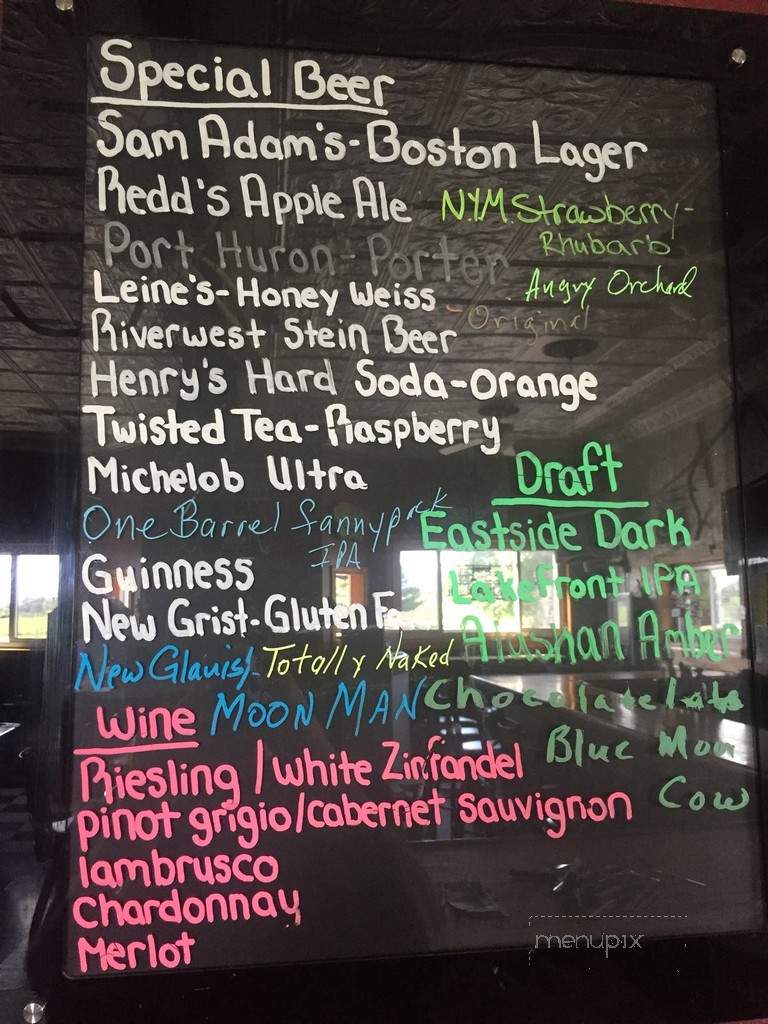 Special Beer
Sam Adam's-Boston Lager
Redd's Apple Ale
N.Y.M. Strawberry-
Rhubarb
Port Huron-Porter
Angry Orchard
Leine's-Honey Weiss
-Original
Riverwest Stein Beer
Henry's Hard Soda-Orange
Twisted Tea-Raspberry
Michelob Ultra
Draft
One Barrel fannypack
IPA
Eastside Dark
Guinness
Lakefront IPA
New Grist-Gluten
New Glarus- Totally Naked
Alaskan Amber
MOON MAN
Chocolate
Wine
Blue Moon
Riesling/white Zinfandel
Cow
pinot grigio/cabernet sauvignon
lambrusco
Chardonnay
Merlot
menupix